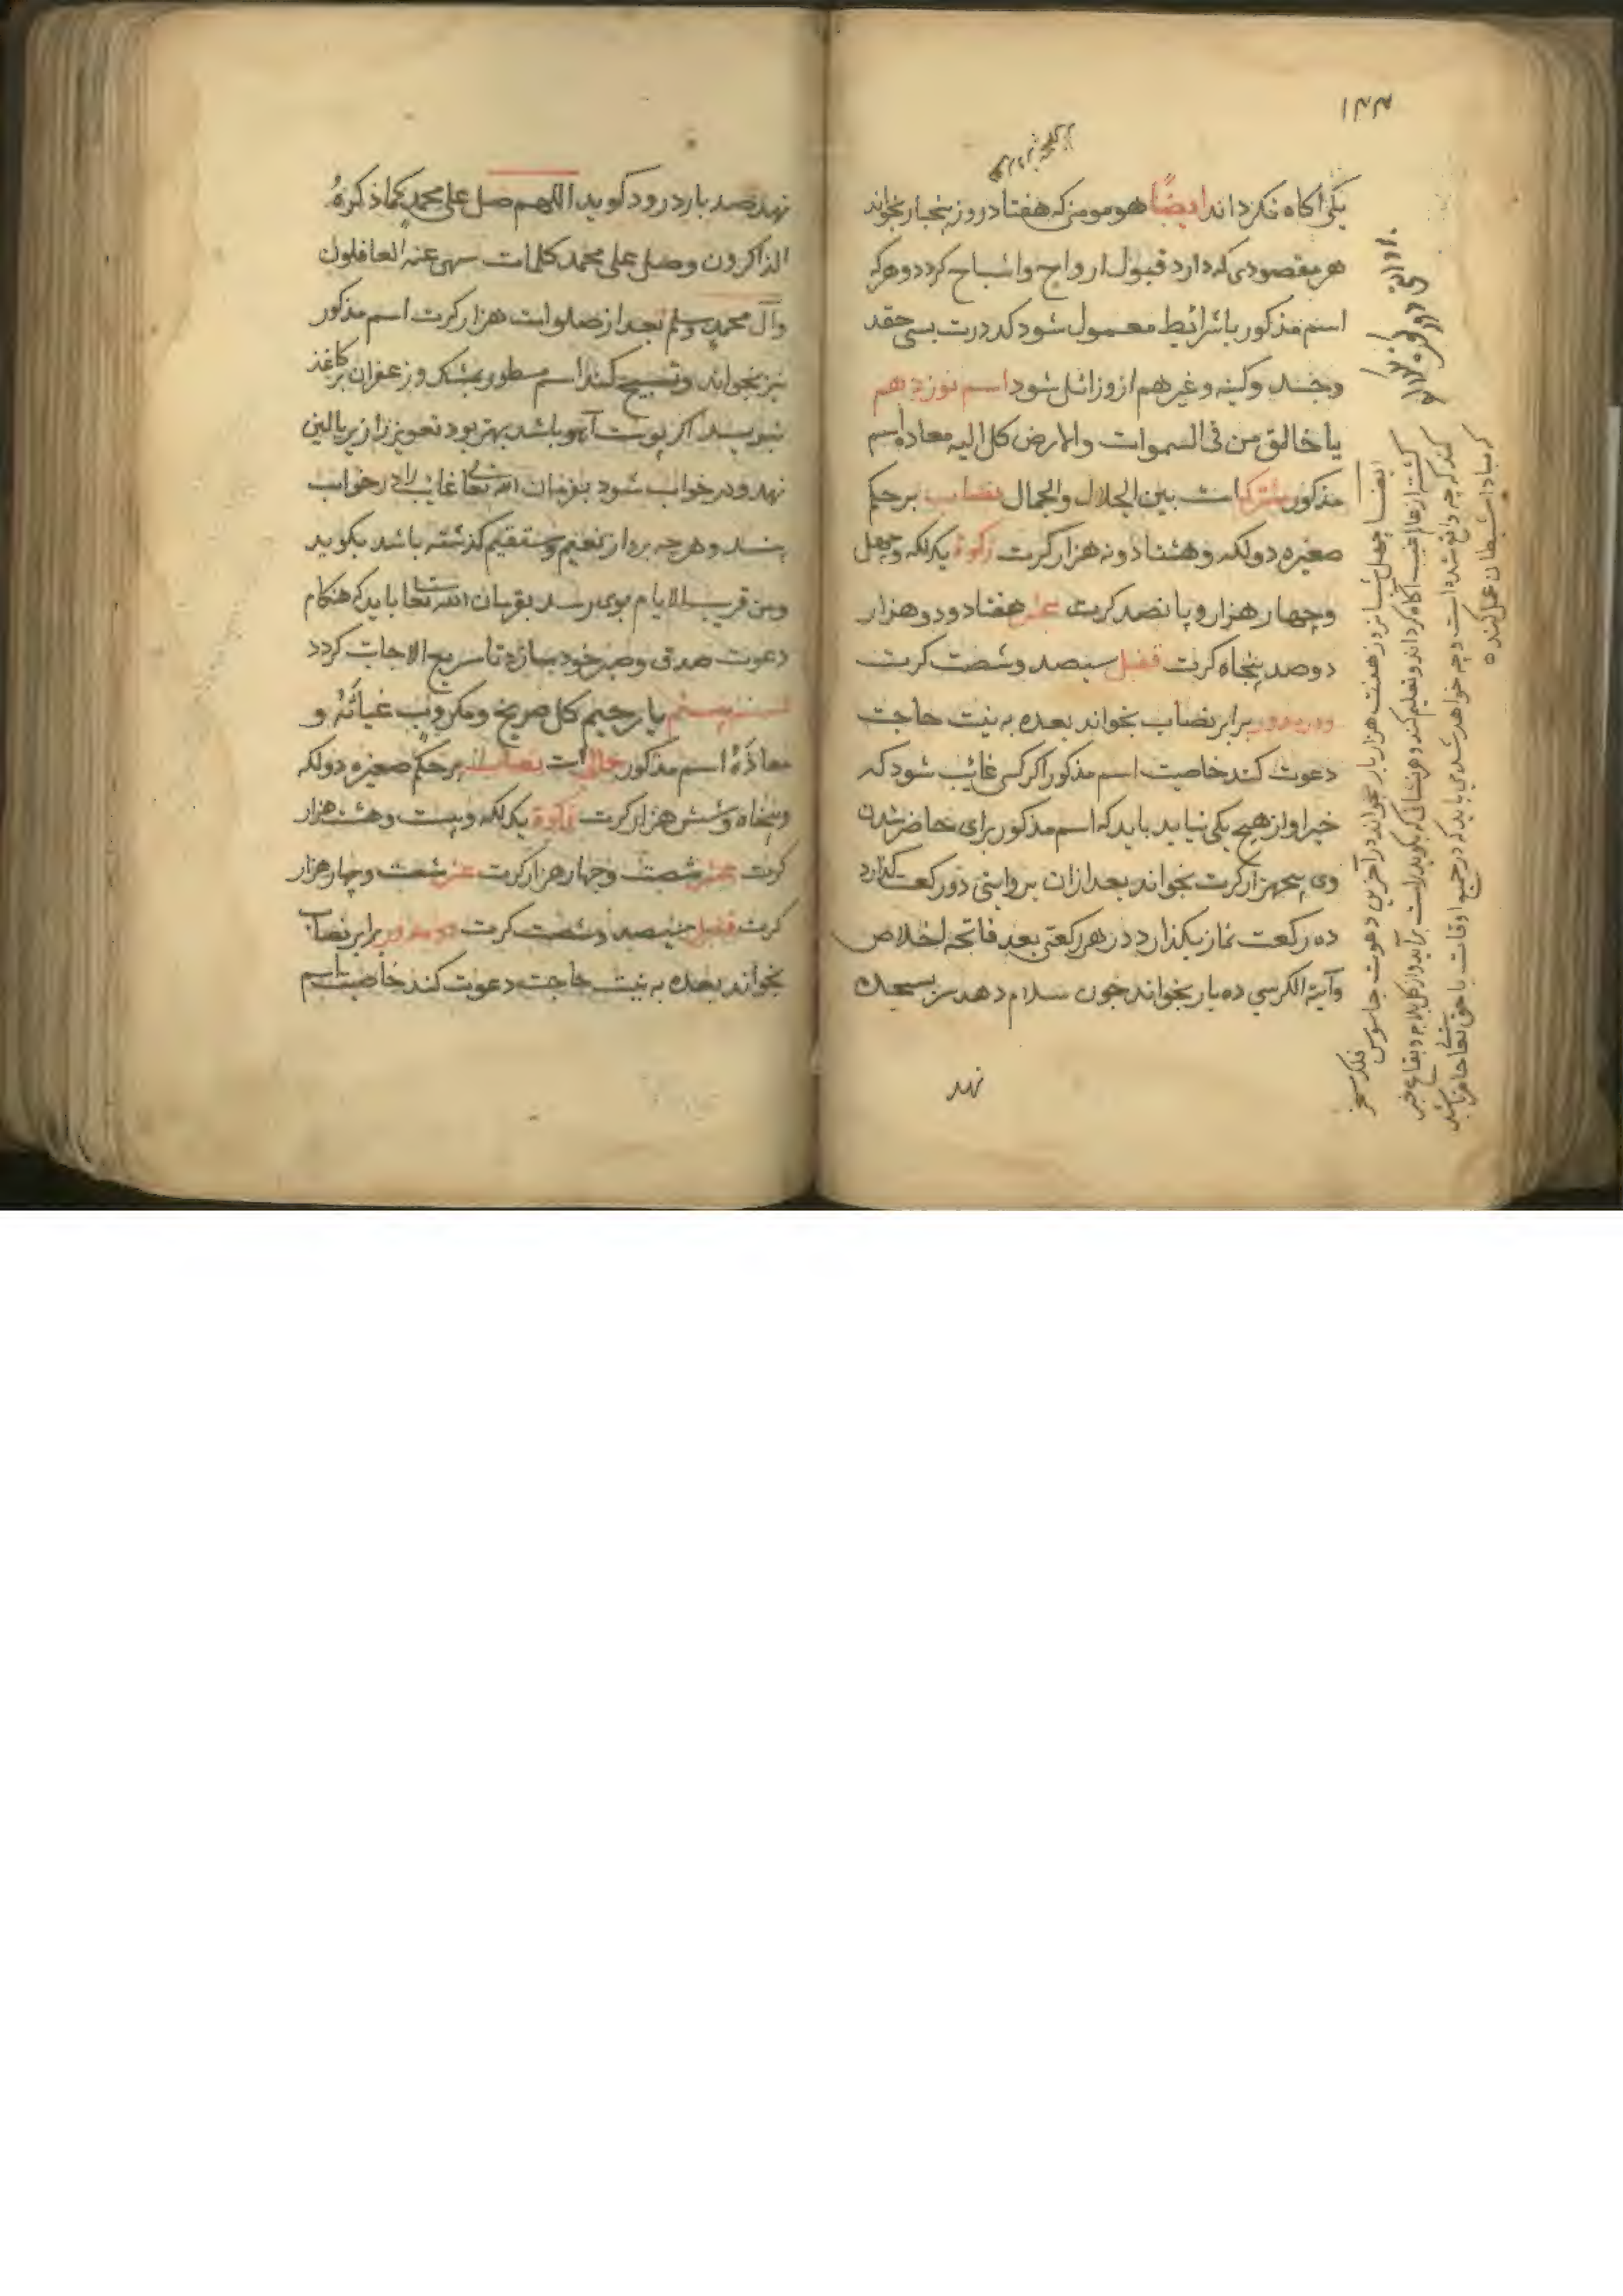 ۱۴۴
یکی اکاه نکرداند ایضًا هو مومن که هفتاد روز پنجبار بخواند
هر مقصودی که دارد قبول ارواح واشباح کردد و هرکه
اسم مذکور باشرائط معمول شود کدورت
وکینه وغیرهم ازو زائل شود اسم نوزدهم
یا خالق من فی السموات والارض کل الیه معاده اسم
مذکور مشترک است بین الجلال والجمال نصاب بر حکم
صغیره دو لکهه وهشتاد و نه هزار کرت زکوة یک لکهه وچهل
وچهار هزار و پانصد کرت عشر هفتاد و دو هزار
دو صد پنجاه کرت قفل سیصد وشصت کرت
دور مدور برابر نصاب بخواند بعده به نیت حاجت
دعوت کند خاصیت اسم مذکور اکر کسی غائب شود که
خبر او از هیچ یکی نیاید باید که اسم مذکور برای حاضر شدن
وی پنجهزار کرت بخواند بعد ازان بروایتی دو رکعت کذارد
ده رکعت نماز بکذارد در هر رکعتی بعد فاتحه اخلاص
وآیة الکرسی ده بار بخواند چون سلام دهد سر بسجده
نهد
ایضا چهل شبانروز هفت هزار بار بخواند در آخرین دعوت جاسوس فلک مسخر
کشته از عالم غیب آکاه کرداند و تعلیم کند و هر نشانی که بکوید راست برآید
کند که چه واقع شده است و چه خواهد شد می باید که در جمیع اوقات با حق تعالی حاضر باشد
که مبادا شیطان عمل کند
نهد صد بار درود کوید اللهم صل علی محمد کما ذکره
الذاکرون وصل علی محمد کلمات سهی عنه الغافلون
وآل محمد وسلم بعد از صلوات هزار کرت اسم مذکور
نیز بخواند و تسبیح کند اسم مسطور بمشک و زعفران بر کاغذ
نبویسد اکر پوست آهو باشد بهتر بود تعویز را زیر بالین
نهد و در خواب شود بفرمان الله تعالی غائب را در خواب
بیند و هرچه بر وی از نعیم و سقیم کذشته باشد بکوید
ومن قریب الایام بوی رسد بفرمان الله تعالی باید که هنکام
دعوت صدق و صبر خود سازد تا سریع الاجابت کردد
اسم بیستم یا رحیم کل صریخ ومکروب غیاثه و
معاذه اسم مذکور جمالی است نصاب بر حکم صغیره دو لکهه
وپنجاه وشش هزار کرت زکوة یک لکهه وبیست وهشت هزار
کرت عشر شصت وچهار هزار کرت عشر شصت وچهار هزار
کرت قفل سیصد وشصت کرت دور مدور برابر نصاب
بخواند بعده به نیت حاجت دعوت کند خاصیت اسم